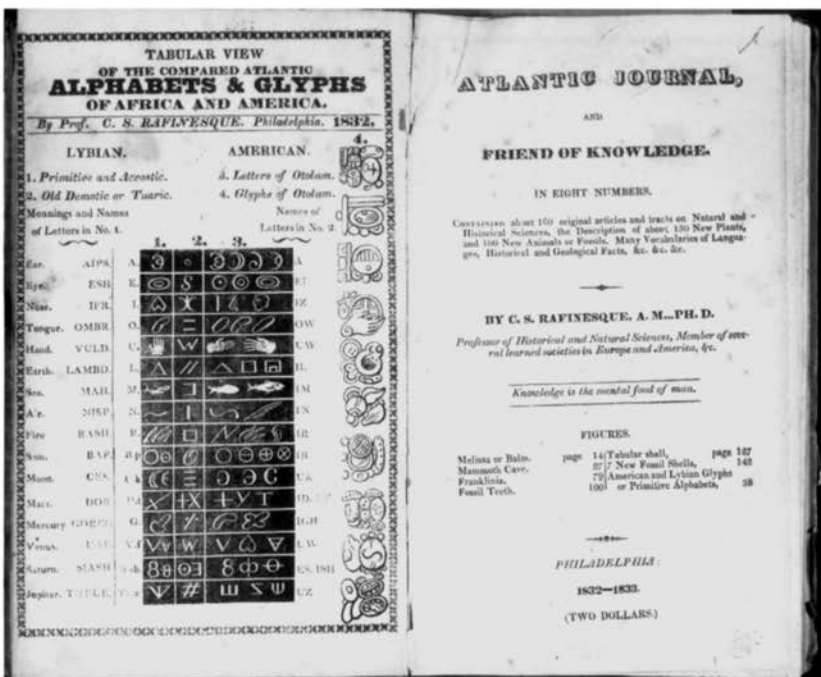 TABULAR VIEW
OF THE COMPARED ATLANTIC
ALPHABETS & GLYPHS
OF AFRICA AND AMERICA.
By Prof. C. S. RAFINESQUE. Philadelphia. 1832.
4.
LYBIAN. AMERICAN.
1. Primitive and Acrostic. 3. Letters of Otolum.
2. Old Demotic or Tuaric. 4. Glyphs of Otolum.
Meanings and Names Names of
of Letters in No. 1. Letters in No. 2.
1. 2. 3.
Ear. AIPS. A. A
Eye. ESH. E.
Nose. IFR. I. IZ
Tongue. OMBR. O. OW
Hand. VULD. U. UW
Earth. LAMBD. L. IL
Sea. MAH. M. IM
Air. NISP. N. IN
Fire RASH. R. IR
Sun. BAP. B.p IB
Moon. UK
Mars. DOR
Mercury G. IGH
Venus. UW
Saturn. SLASH ES. ISH
Jupiter. UZ
ATLANTIC JOURNAL,
AND
FRIEND OF KNOWLEDGE.
IN EIGHT NUMBERS.
Containing about 160 original articles and tracts on Natural and
Historical Sciences, the Description of about 150 New Plants,
and 100 New Animals or Fossils. Many Vocabularies of Langua-
ges, Historical and Geological Facts, &c. &c. &c.
BY C. S. RAFINESQUE. A. M...PH. D.
Professor of Historical and Natural Sciences, Member of seve-
ral learned societies in Europe and America, &c.
Knowledge is the mental food of man.
FIGURES.
Melissa or Balm. page 14 Tabular shall, page 127
Mammoth Cave. 27 7 New Fossil Shells, 142
Franklinia. 79 American and Lybian Glyphs
Fossil Teeth. 109 or Primitive Alphabets, 38
PHILADELPHIA:
1832—1833.
(TWO DOLLARS.)